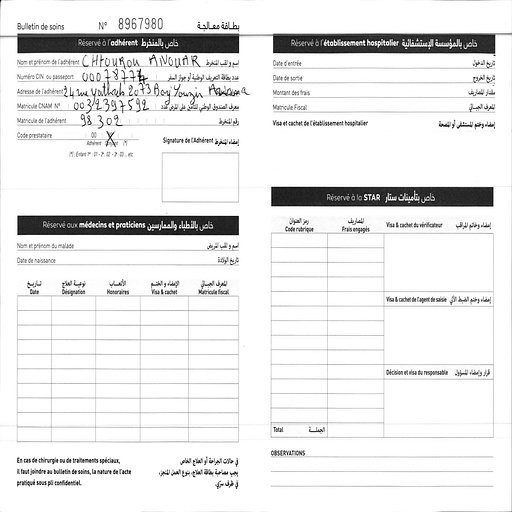 Bulletin de soins N° 8967980 بطاقة معالجة
Réservé à l'adhérent خاص بالمنخرط
Nom et prénom de l'adhérent CHTOUROU ANOUAR اسم و لقب المنخرط
Numéro CIN ou passeport عدد بطاقة التعريف الوطنية أو جواز السفر
Adresse de l'adhérent 24 rue 2073 Borj Louzir Ariana
Matricule CNAM N° 0032397592
Matricule de l'adhérent 98302 رقم المنخرط
Code prestataire 00 X
Adhérent Conjoint (*)
(*) : Enfant 1er : 01 - 2° : 02 - 3° : 03 ... etc
Signature de l'Adhérent إمضاء المنخرط
Réservé aux médecins et praticiens خاص بالأطباء والممارسين
Nom et prénom du malade اسم و لقب المريض
Date de naissance تاريخ الولادة
تاريخ نوعية العلاج الأتعاب الإمضاء و الختم المعرف الجبائي
Date Désignation Honoraires Visa & cachet Matricule fiscal
En cas de chirurgie ou de traitements spéciaux,
il faut joindre au bulletin de soins, la nature de l'acte
pratiqué sous pli confidentiel.
في حالات الجراحة أو العلاج الخاص
يجب مصاحبة بطاقة العلاج، بنوع العمل المنجز،
في ظرف سري.
Réservé à l'établissement hospitalier خاص بالمؤسسة الإستشفائية
Date d'entrée تاريخ الدخول
Date de sortie تاريخ الخروج
Montant des frais مقدار المصاريف
Matricule Fiscal المعرف الجبائي
Visa et cachet de l'établissement hospitalier إمضاء وختم المستشفى أو المصحة
Réservé à la STAR خاص بتأمينات ستار
رمز العنوان المصاريف
Code rubrique Frais engagés
Visa & cachet du vérificateur إمضاء وخاتم المراقب
Visa & cachet de l'agent de saisie إمضاء وختم الضبط الآلي
Décision et visa du responsable قرار وإمضاء المسؤول
Total الجملة
OBSERVATIONS